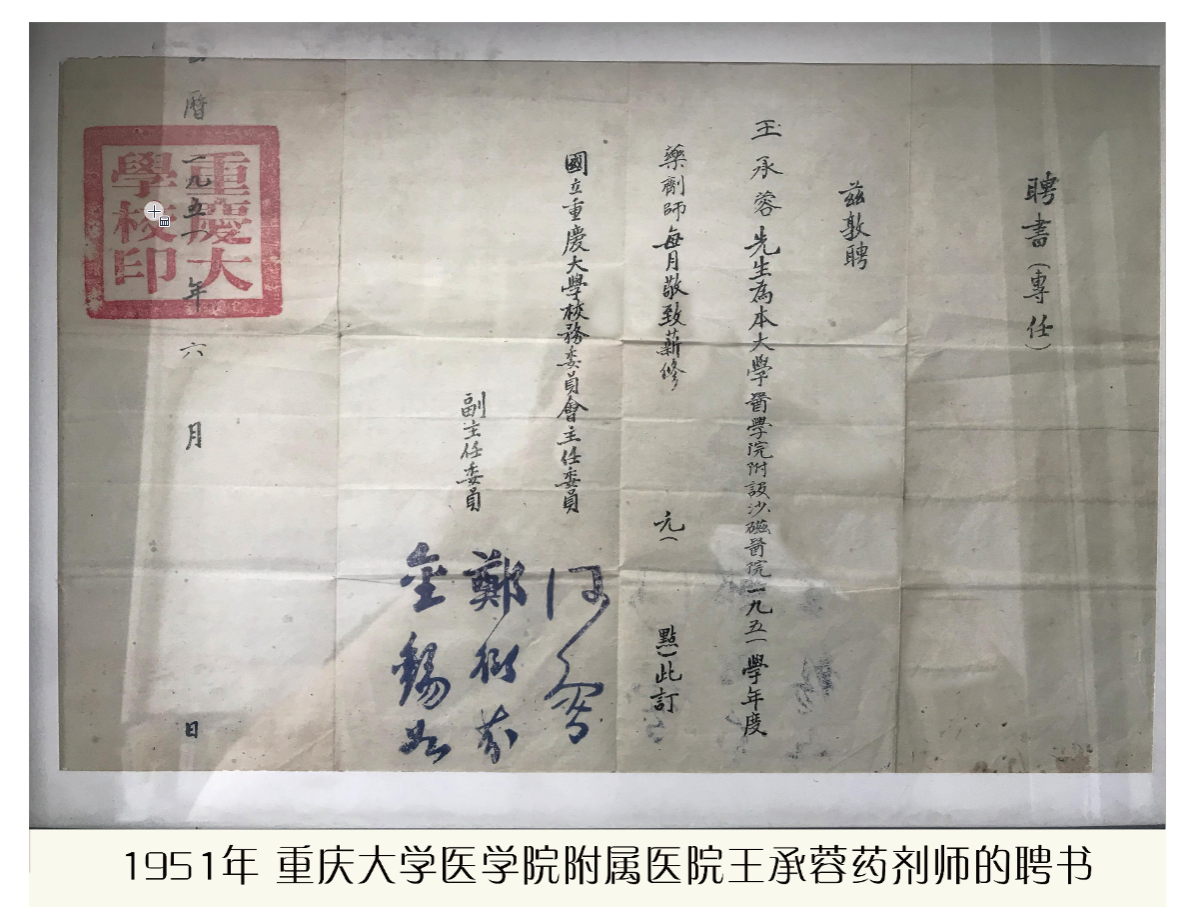 聘書（專任）
兹敦聘
王承蓉先生為本大學醫學院附設沙磁醫院一九五一學年度
藥劑師每月敬致薪修 元（ 點）此訂
國立重慶大學校務委員會主任委員 何魯
副主任委員 鄭衍芬
金錫如
公曆一九五一年六月 日
重慶大學校印
1951年 重庆大学医学院附属医院王承蓉药剂师的聘书